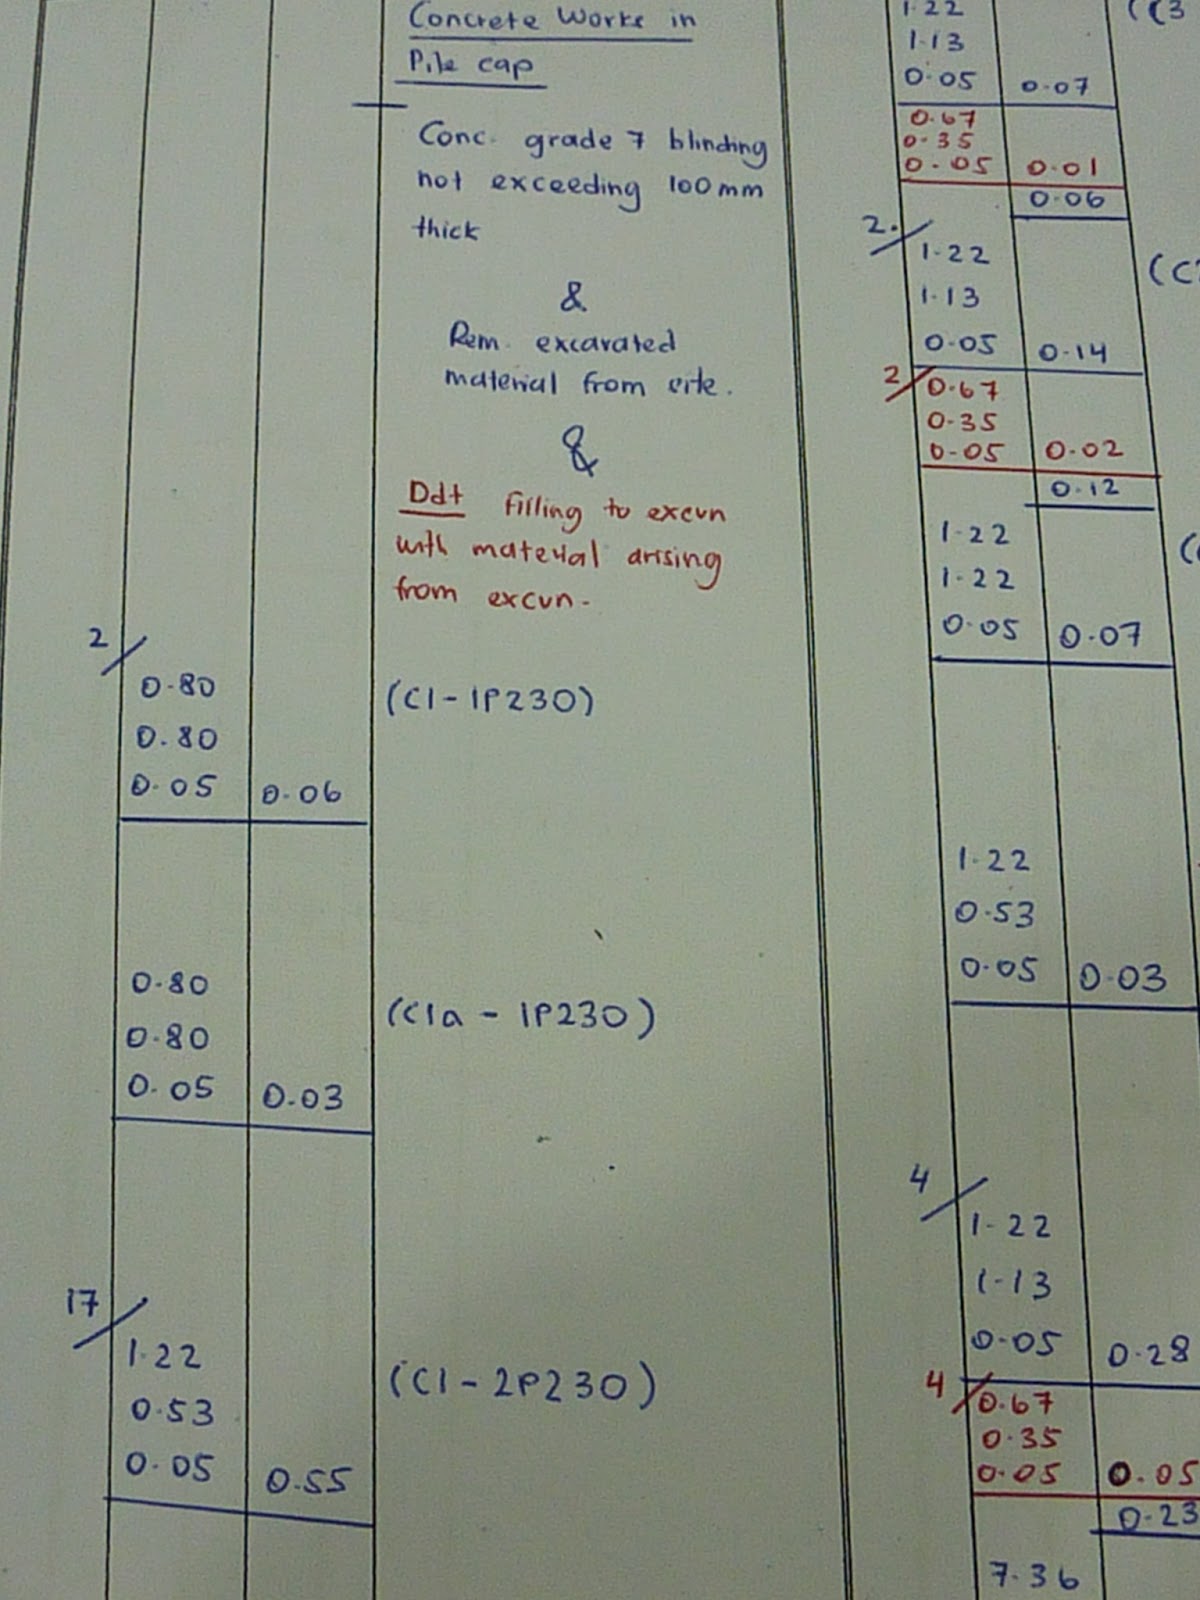 Concrete Works in
Pile cap
Conc. grade 7 blinding
not exceeding 100mm
thick
&
Rem. excavated
material from site.
&
Ddt filling to excvn
with material arising
from excvn.
2/
0.80
0.80
0.05 0.06
(C1-1P230)
0.80
0.80
0.05 0.03
(C1a - 1P230)
17/
1.22
0.53
0.05 0.55
(C1-2P230)
1.22
1.13
0.05 0.07
(C3
0.67
0.35
0.05 0.01
0.06
2/
1.22
1.13
0.05 0.14
2/
0.67
0.35
0.05 0.02
0.12
1.22
1.22
0.05 0.07
1.22
0.53
0.05 0.03
4/
1.22
1.13
0.05 0.28
4/
0.67
0.35
0.05 0.05
0.23
7.36